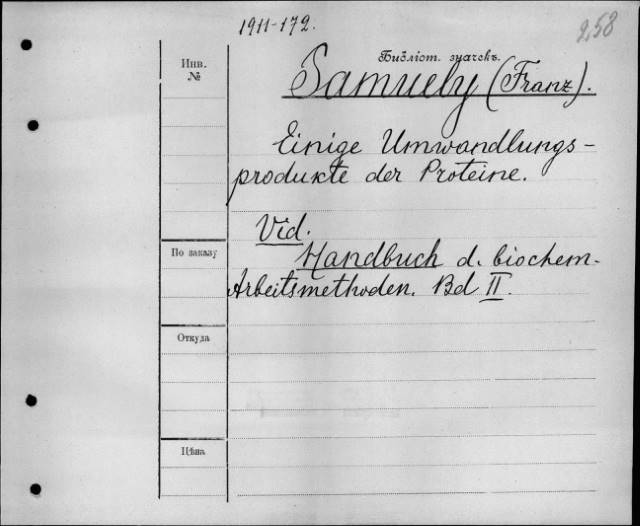 1911-172.
258
Инв.
№
Библіот. значекъ.
Samuely (Franz).
Einige Umwandlungs-
produkte der Proteine.
Vid.
По заказу
Handbuch d. biochem.
Arbeitsmethoden. Bd II.
Откуда
Цѣна